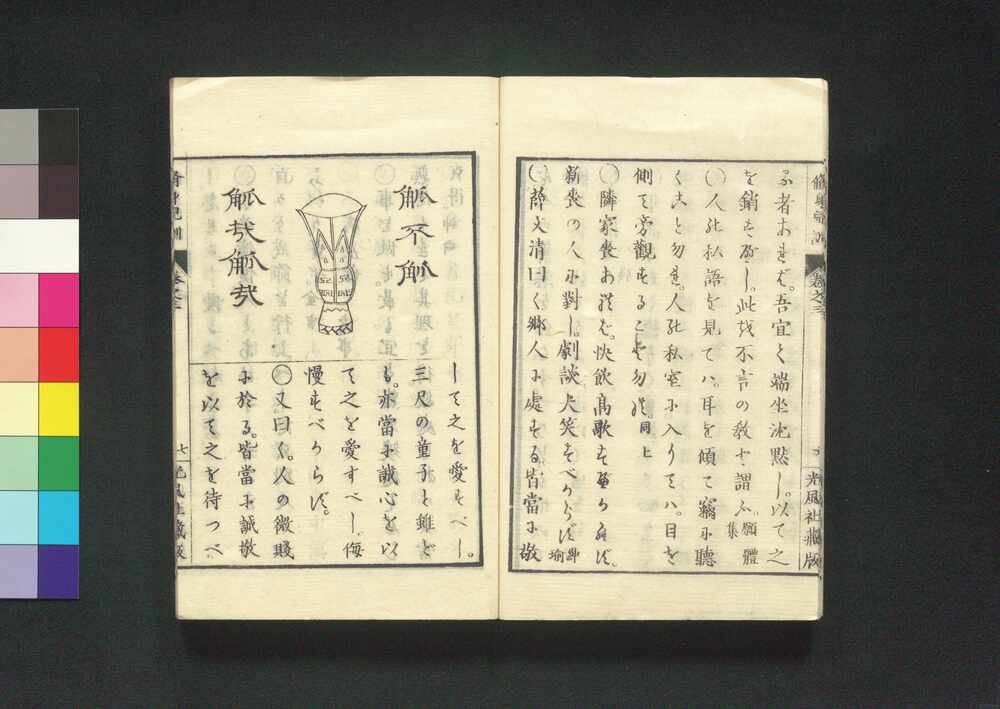 る者あれば。吾宜く端坐沈黙し。以て之
を銷すべし。此を不言の教と謂ふ。願體集
○人の私語を見ては。耳を傾て竊に聽
くこと勿れ。人の私室に入りては。目を
側て旁觀することを勿れ同上
○隣家喪あれば。快飲高歌すべからず。
新喪の人に對し。劇談大笑すべからず
○薛文清曰く郷人に處する皆當に敬
して之を愛すべし。
三尺の童子と雖ど
も。亦當に誠心を以
て之を愛すべし。侮
慢すべからず。
○又曰く。人の微賤
に於る。皆當に誠敬
を以て之を待つべ
觚不觚
觚哉觚哉
光風社藏版
卷之三
七
光風社藏版